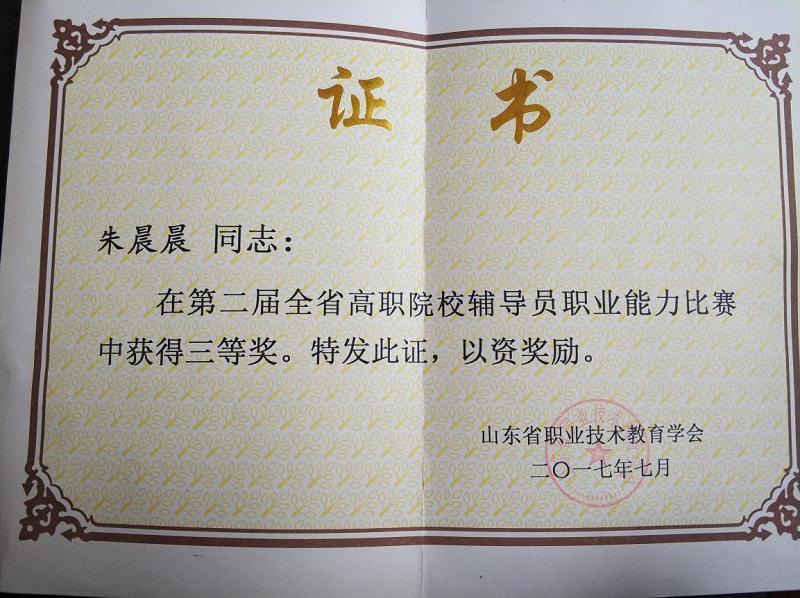 证书
朱晨晨 同志：
在第二届全省高职院校辅导员职业能力比赛
中获得三等奖。特发此证，以资奖励。
山东省职业技术教育学会
二〇一七年七月